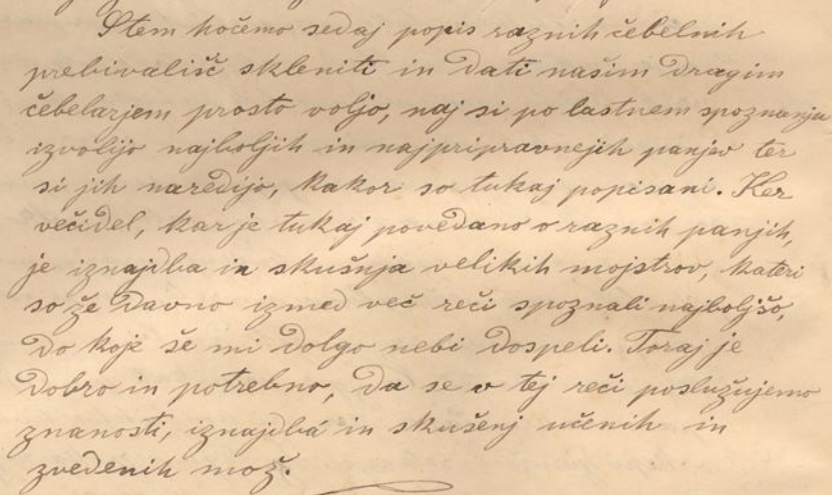 Stem hočemo sedaj popis raznih čebelnih
prebivališč skleniti in dati našim dragim
čebelarjem prosto voljo, naj si po lastnem spoznanju
izvolijo najboljih in najpripravnejih panjev ter
si jih naredijo, kakor so tukaj popisani. Ker
večidel, kar je tukaj povedano o raznih panjih,
je iznajdba in skušnja velikih mojstrov, kateri
so že davno izmed več reči spoznali najboljšo,
do koje še mi dolgo nebi dospeli. Toraj je
dobro in potrebno, da se v tej reči poslužujemo
znanosti, iznajdbá in skušenj učenih in
zvedenih mož.